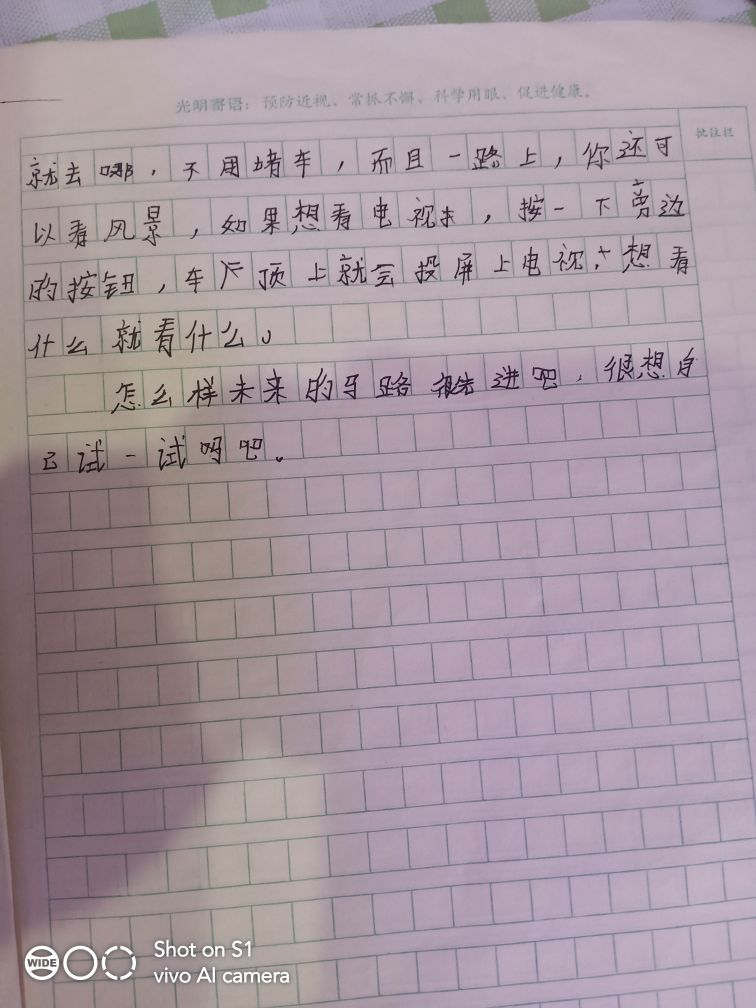 光明寄语：预防近视、常抓不懈、科学用眼、促进健康。
批注栏
就去哪，不用堵车，而且一路上，你还可
以看风景，如果想看电视，按一下旁边
的按钮，车 顶上就会投屏上电视，想看
什么就看什么。
怎么样未来的 路 先进吧，很想自
己试一试吗吧。
WIDE
Shot on S1
vivo AI camera